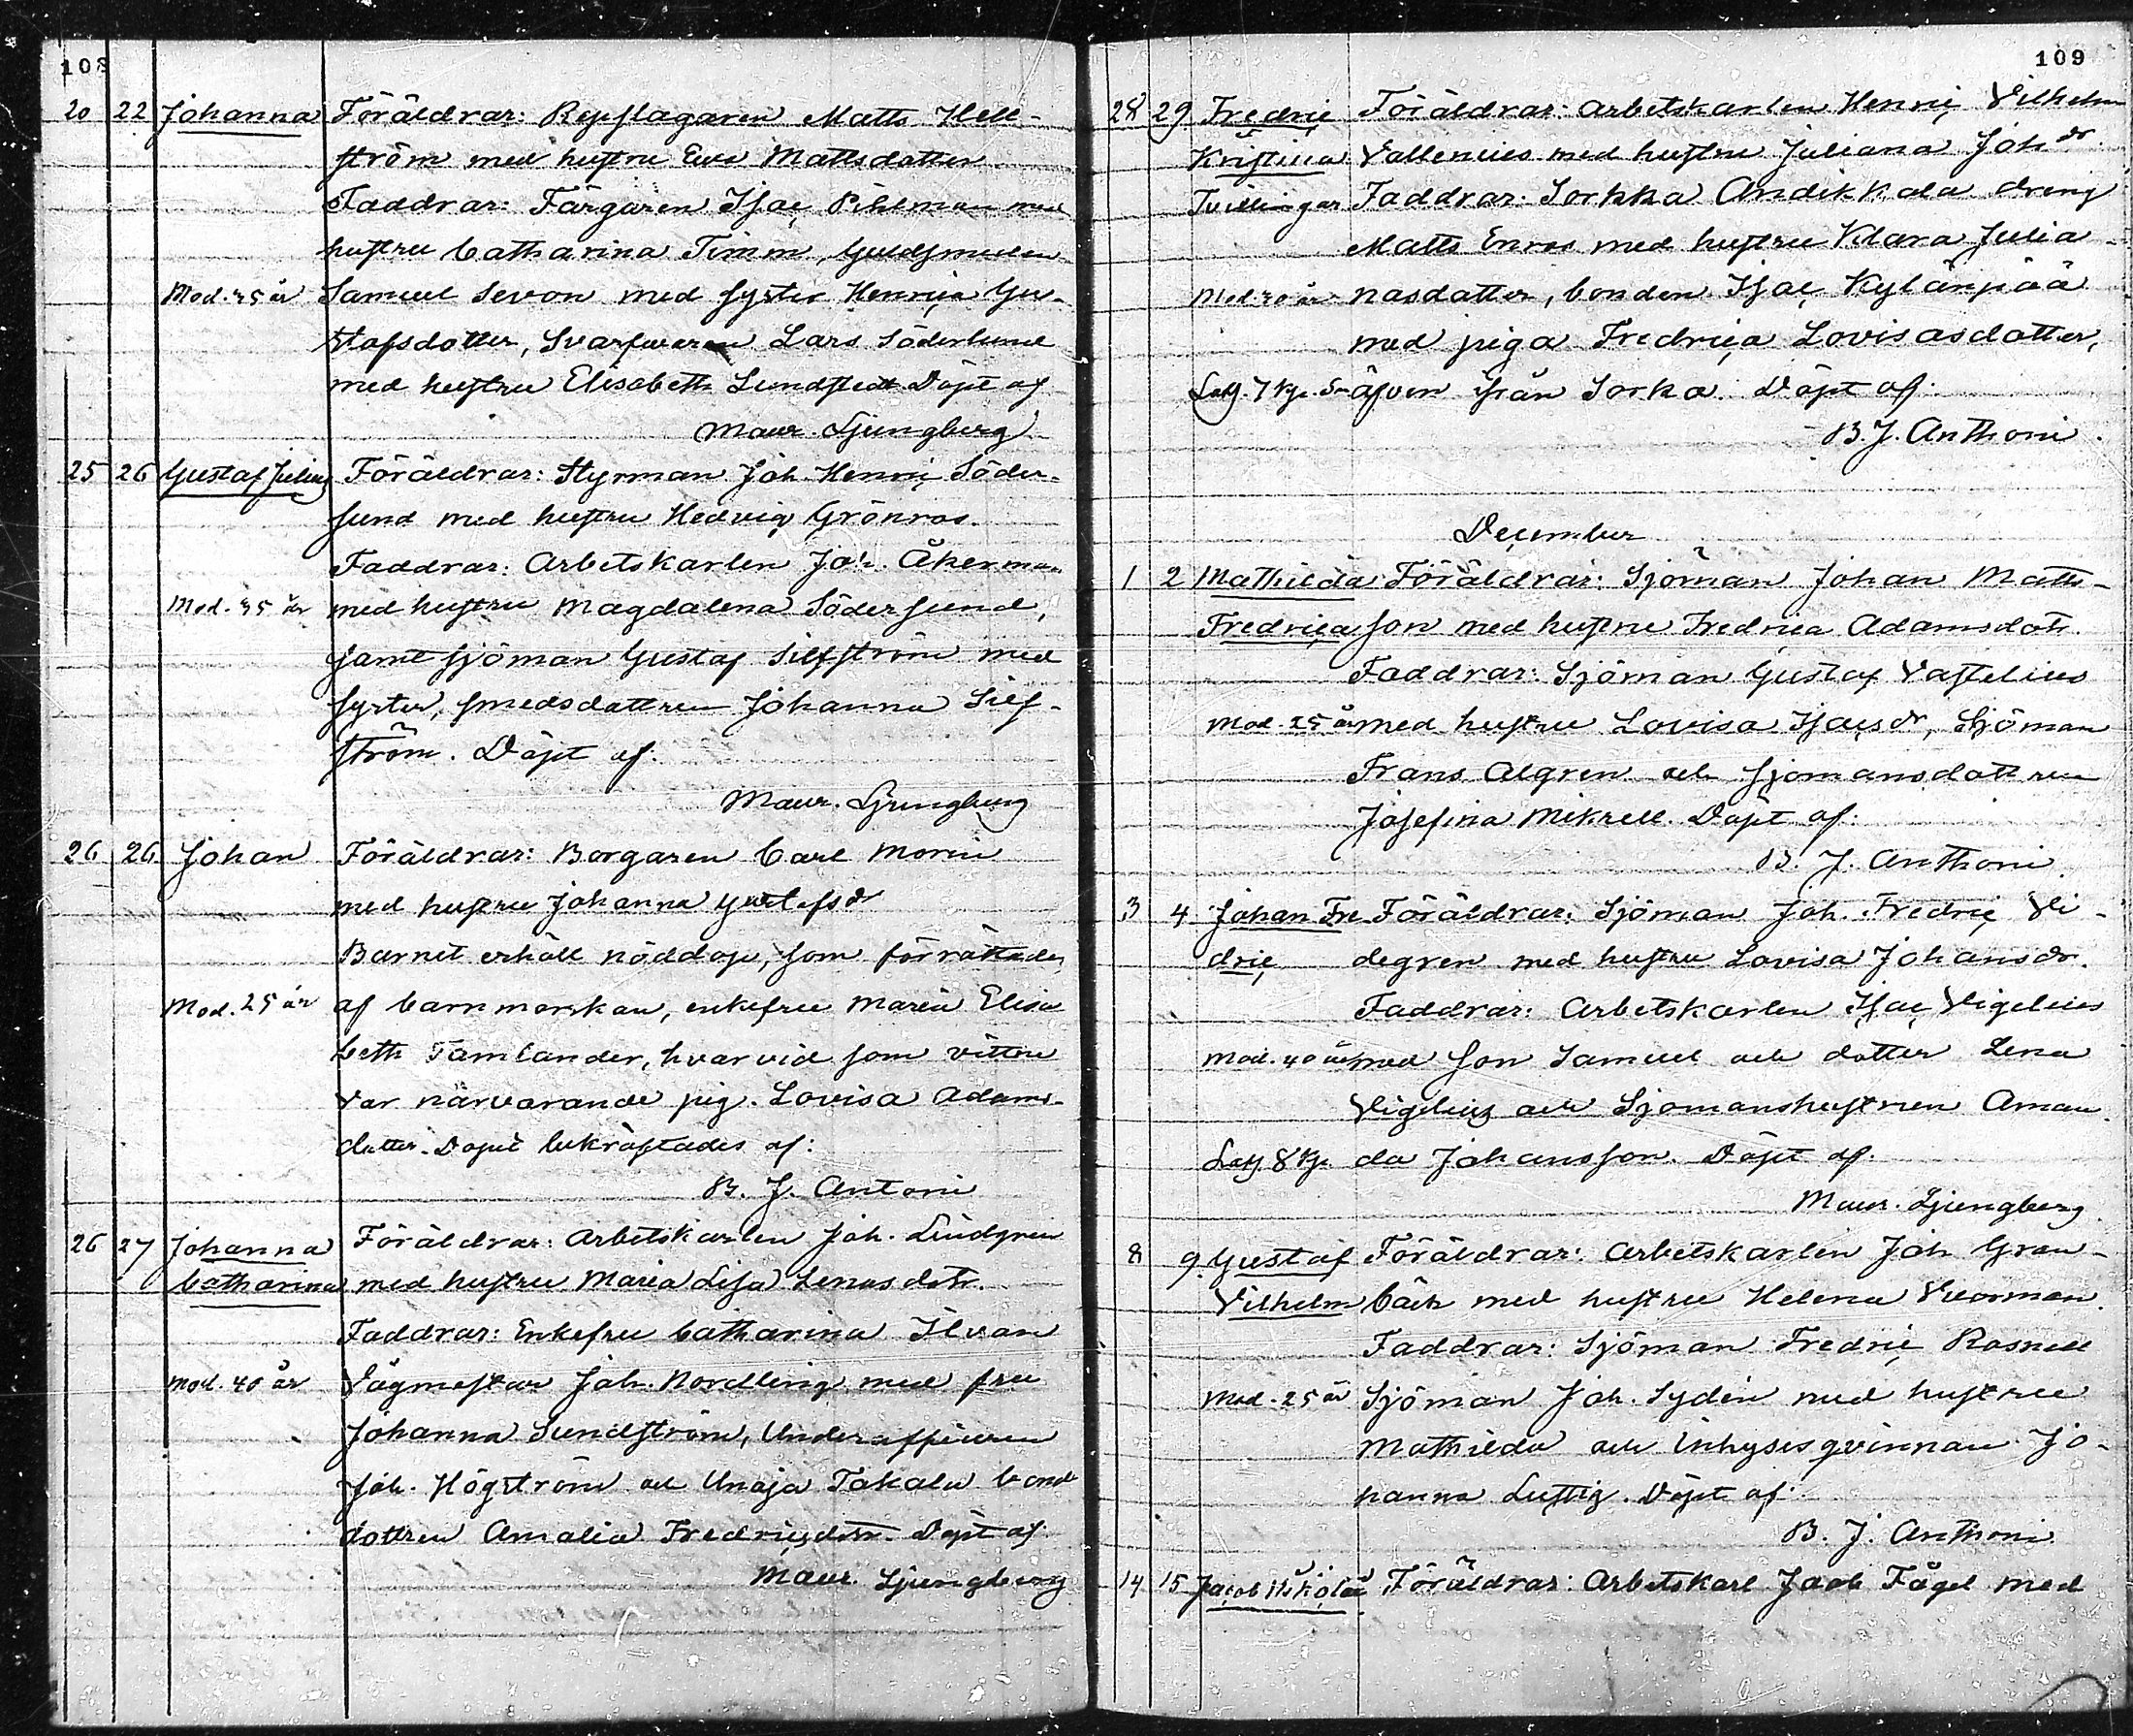 108
20 22 Johanna Föräldrar: Repslagaren Matts Hell-
ström med hustru Eva Mattsdotter
Faddrar: Färgaren Isac Pihlman med
hustru Catharina Timm, Guldsmeden
Mod. 45 år Samuel Sevon med syster Henrica Gu-
stafsdotter, Svarfvaren Lars Söderlund
med hustru Elisabeth Lundstedt Döpt af
Maur. Ljungberg
25 26 Gustaf Julius Föräldrar: Styrman Joh. Henric Söder-
sund med hustru Hedvig Grönroos.
Faddrar: Arbetskarlen Joh. Åkerman
Mod. 35 år med hustru Magdalena Södersund,
samt sjöman Gustaf Silfström med
syster, smedsdottren Johanna Silf-
ström. Döpt af.
Maur. Ljungberg
26 26 Johan Föräldrar: Borgaren Carl Morin
med hustru Johanna Gustafsdr
Barnet erhöll nöddop, som förrättades
Mod. 25 år af barnmorskan, enkefru Maria Elisa
beth Tamlander, hvarvid som vittne
var närvarande pig. Lovisa Adams-
dotter. Dopet bekräftades af:
B. J. Antoni
26 27 Johanna Föräldrar: Arbetskarlen Joh. Lindgren
Catharina med hustru Maria Lisa Lenasdotr.
Faddrar: Enkefru Catharina Ilvan
Mod. 40 år Vågmästar Joh. Nordling med fru
Johanna Sundström, Underofficeren
Joh. Högström och Unaja Takala bond
dottren Amalia Fredricsdotr. Döpt af
Maur. Ljungberg
109
28 29 Fredric Föräldrar: Arbetskarlen Henric Vilhelm
Kristina Vallenius med hustru Juliana Joh dr
Tvillingar Faddrar: Sorkka Andikkala dreng
Matts Enroos med hustru Klara Julia-
Mod 40 år nasdotter, bonden Isac Kylänpää
med piga Fredrica Lovisasdotter,
Latg. 7 Kp. S- äfven från Sorka. Döpt af.
B. J. Anthoni.
December
1 2 Mathilda Föräldrar: Sjöman Johan Matts-
Fredrica son med hustru Fredrica Adamsdotr.
Faddrar: Sjöman Gustaf Vastelius
Mod. 25 år med hustru Lovisa Isacsdr, Sjöman
Frans Algren och sjomansdottren
Josefina Mikrell. Döpt af:
B. J. Anthoni.
3 4 Johan Fre Föräldrar: Sjöman Joh. Fredric Vi-
dric degren med hustru Lovisa Johansdr.
Faddrar: Arbetskarlen Isac Vigelius
Mod. 40 år med son Samuel och dotter Lena
Vigelius och Sjomanshustrun Aman
Latg. 8 Kp. da Johansson. Döpt af.
Maur. Ljungberg
8 9 Gustaf Föräldrar: Arbetskarlen Joh Gran-
Vilhelm bäck med hustru Helena Vuorman.
Faddrar: Sjöman Fredric Rosnell
Mod. 25 år Sjöman Joh. Sydén med hustru
Mathilda och Inhysesqvinnan Jo-
hanna Lustig. Döpt af:
B. J. Anthoni.
14 15 Jacob Nikolai Föräldrar: Arbetskarl Jacob Fågel med